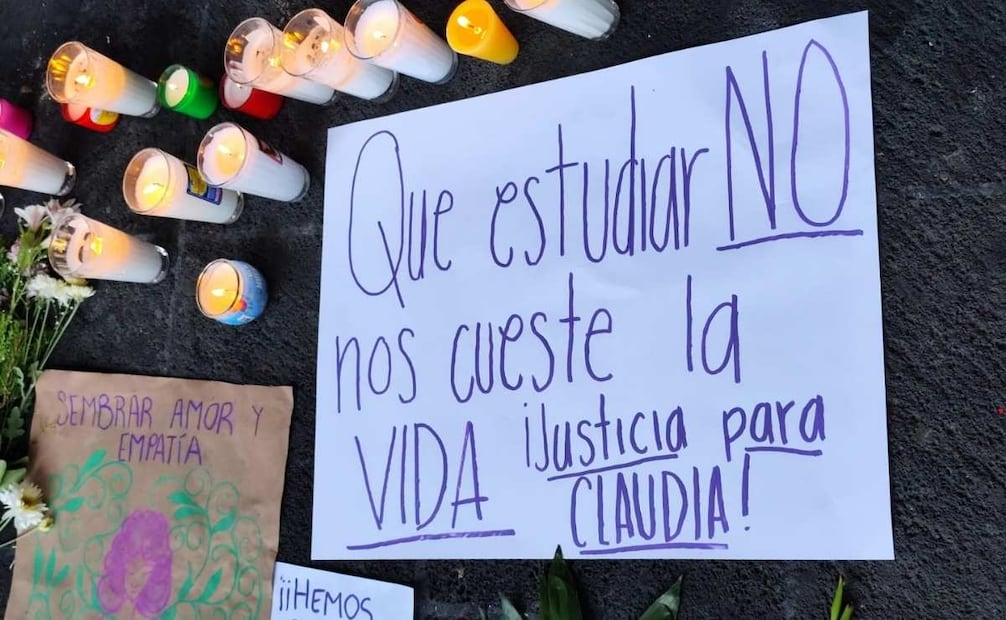 Que estudiar NO
nos cueste la
VIDA ¡Justicia para
CLAUDIA!
SEMBRAR AMOR Y
EMPATÍA
¡¡HEMOS